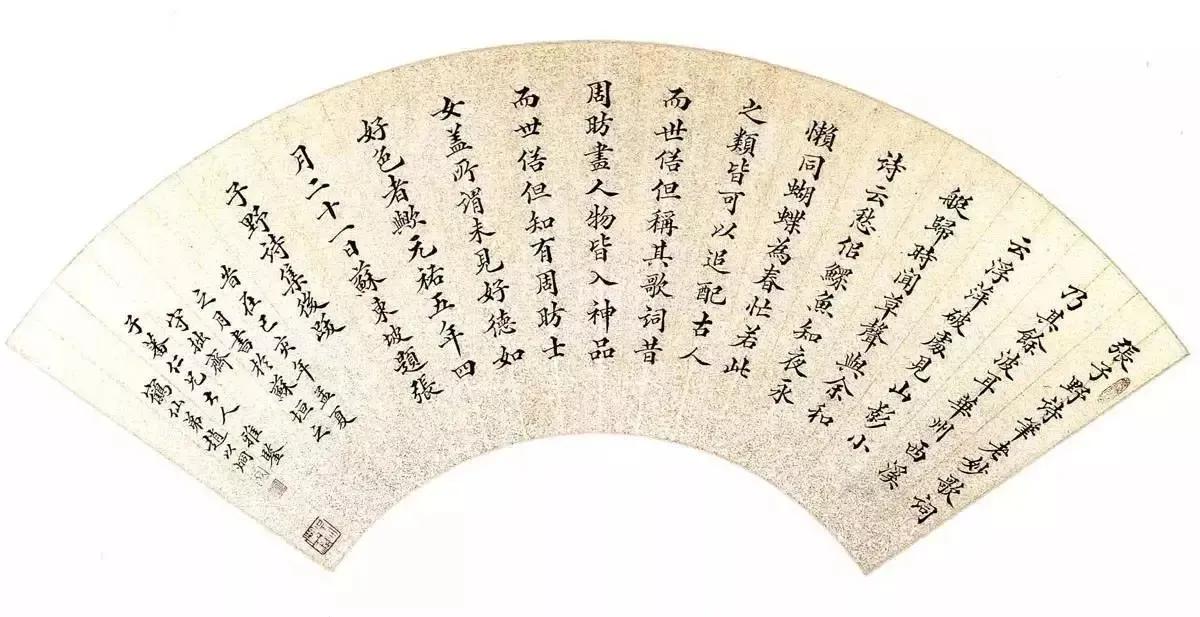 張子野詩筆老妙歌詞
乃其餘波耳華州西溪
云浮萍破處見山影小
艇歸時聞草聲與余和
诗云愁佀鰥魚知夜永
懶同蝴蝶為春忙若此
之類皆可以追配古人
而世俗但稱其歌詞昔
周昉畫人物皆入神品
而世俗但知有周昉士
女盖所謂未見好德如
好色者歟元祐五年四
月二十一日蘇東坡題張
子野詩集後跋
昔在己亥年孟夏
之月書於蘇垣云
守拙齊
子蕃仁兄大人雅鑒
鶴仙弟趙以烱